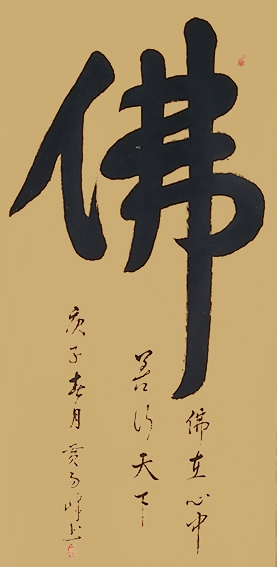 佛
佛在心中
善行天下
庚子春月黄